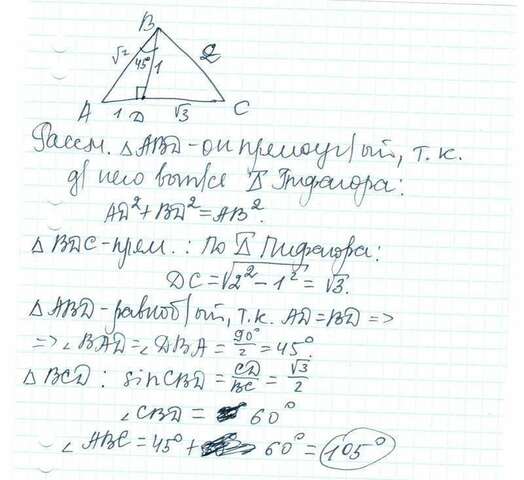 B
√2 45° 1 2
A 1 D √3 C
Рассм. △ABD - он прямоуг/ый, т.к.
д/него вып/ся Т Пифагора:
AD²+BD²=AB².
△BDC-прям.: По Т Пифагора:
DC=√2²-1²=√3.
△ABD-равноб/ый, т.к. AD=BD =>
=>∠BAD=∠DBA=90°/2=45°.
△BCD: sinCBD=CD/BC=√3/2
∠CBD = 60°
∠ABC=45°+ 60°=105°